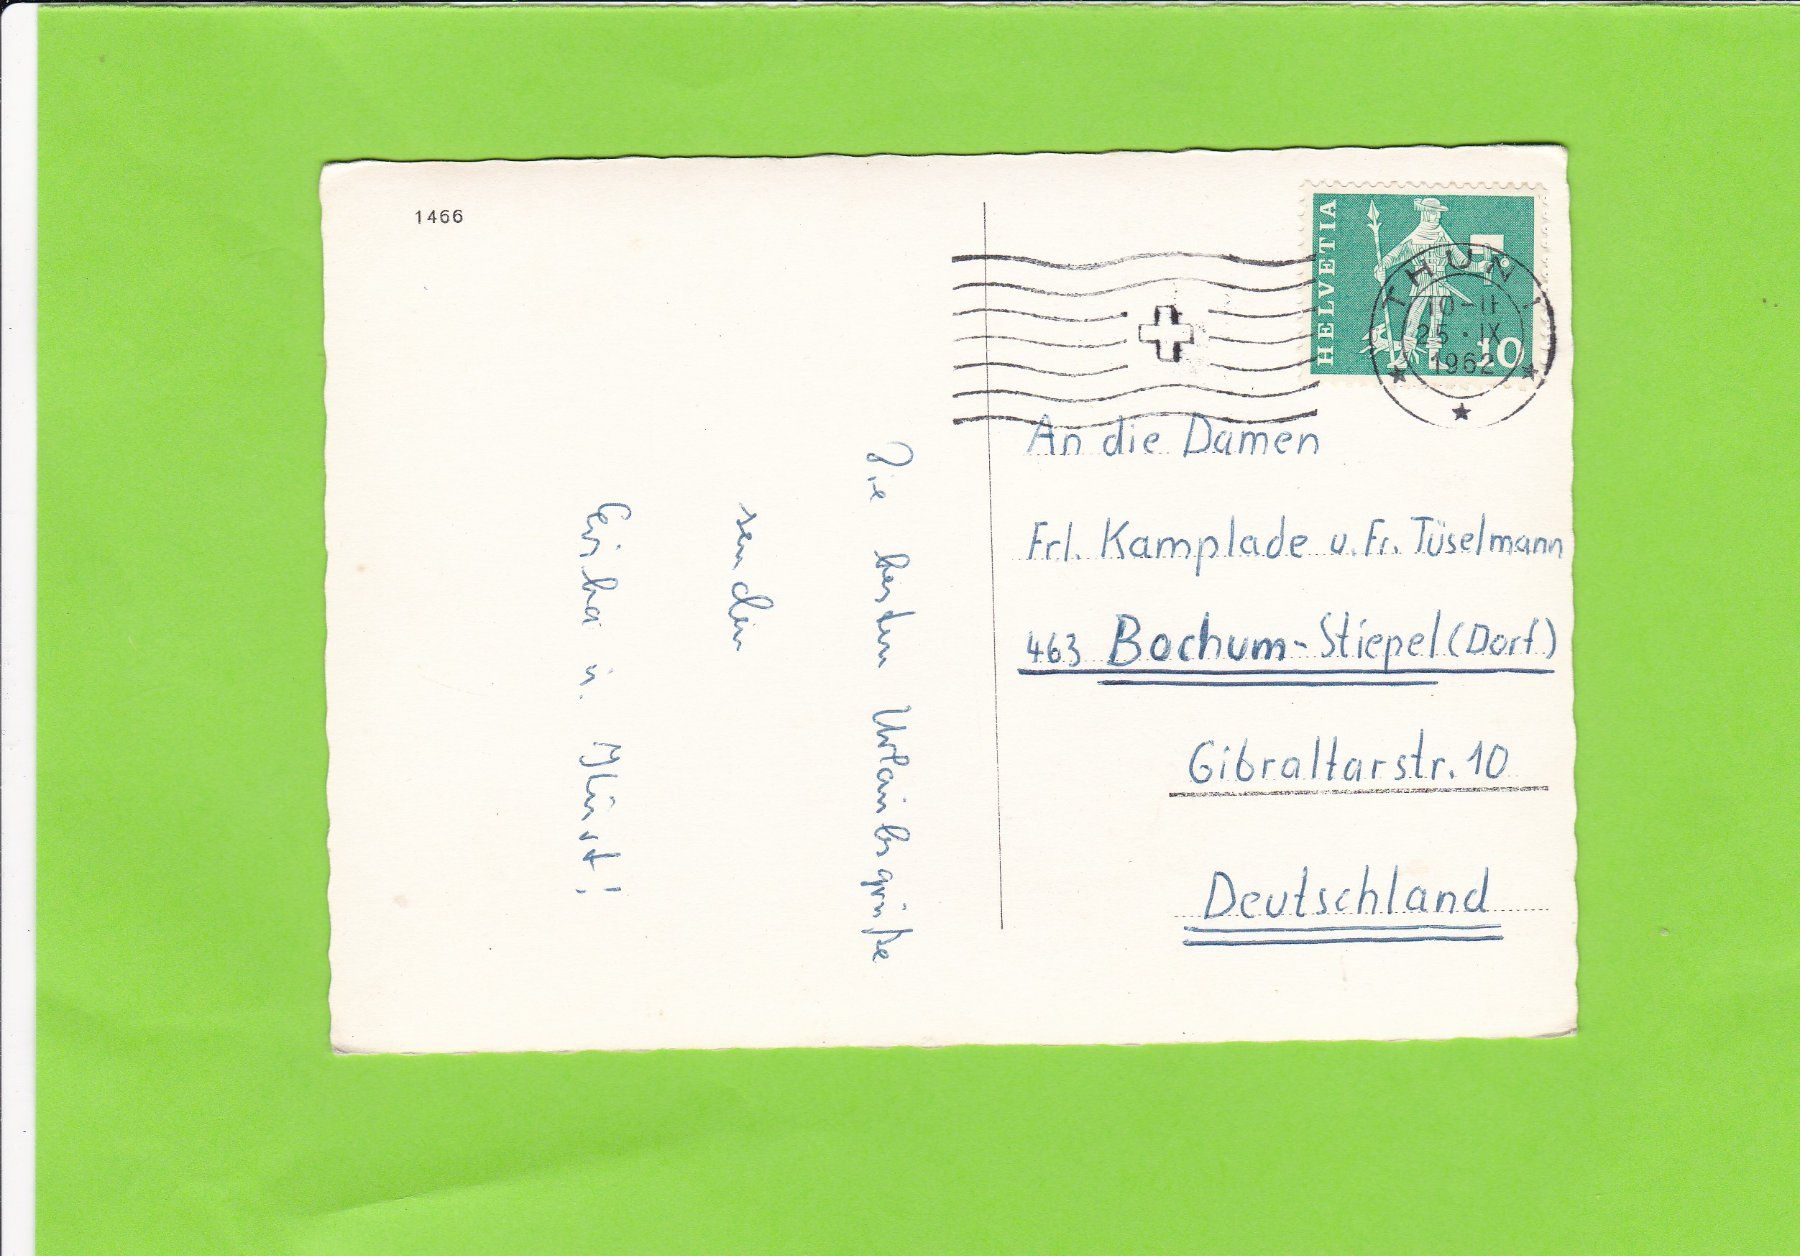 1466
HELVETIA
10
THUN 1
10-11
25.IX
1962
An die Damen
Frl. Kamplade u. Fr. Tüselmann
463 Bochum-Stiepel (Dorf)
Gibraltarstr. 10
Deutschland
Die besten Urlaubsgrüße
senden
u.